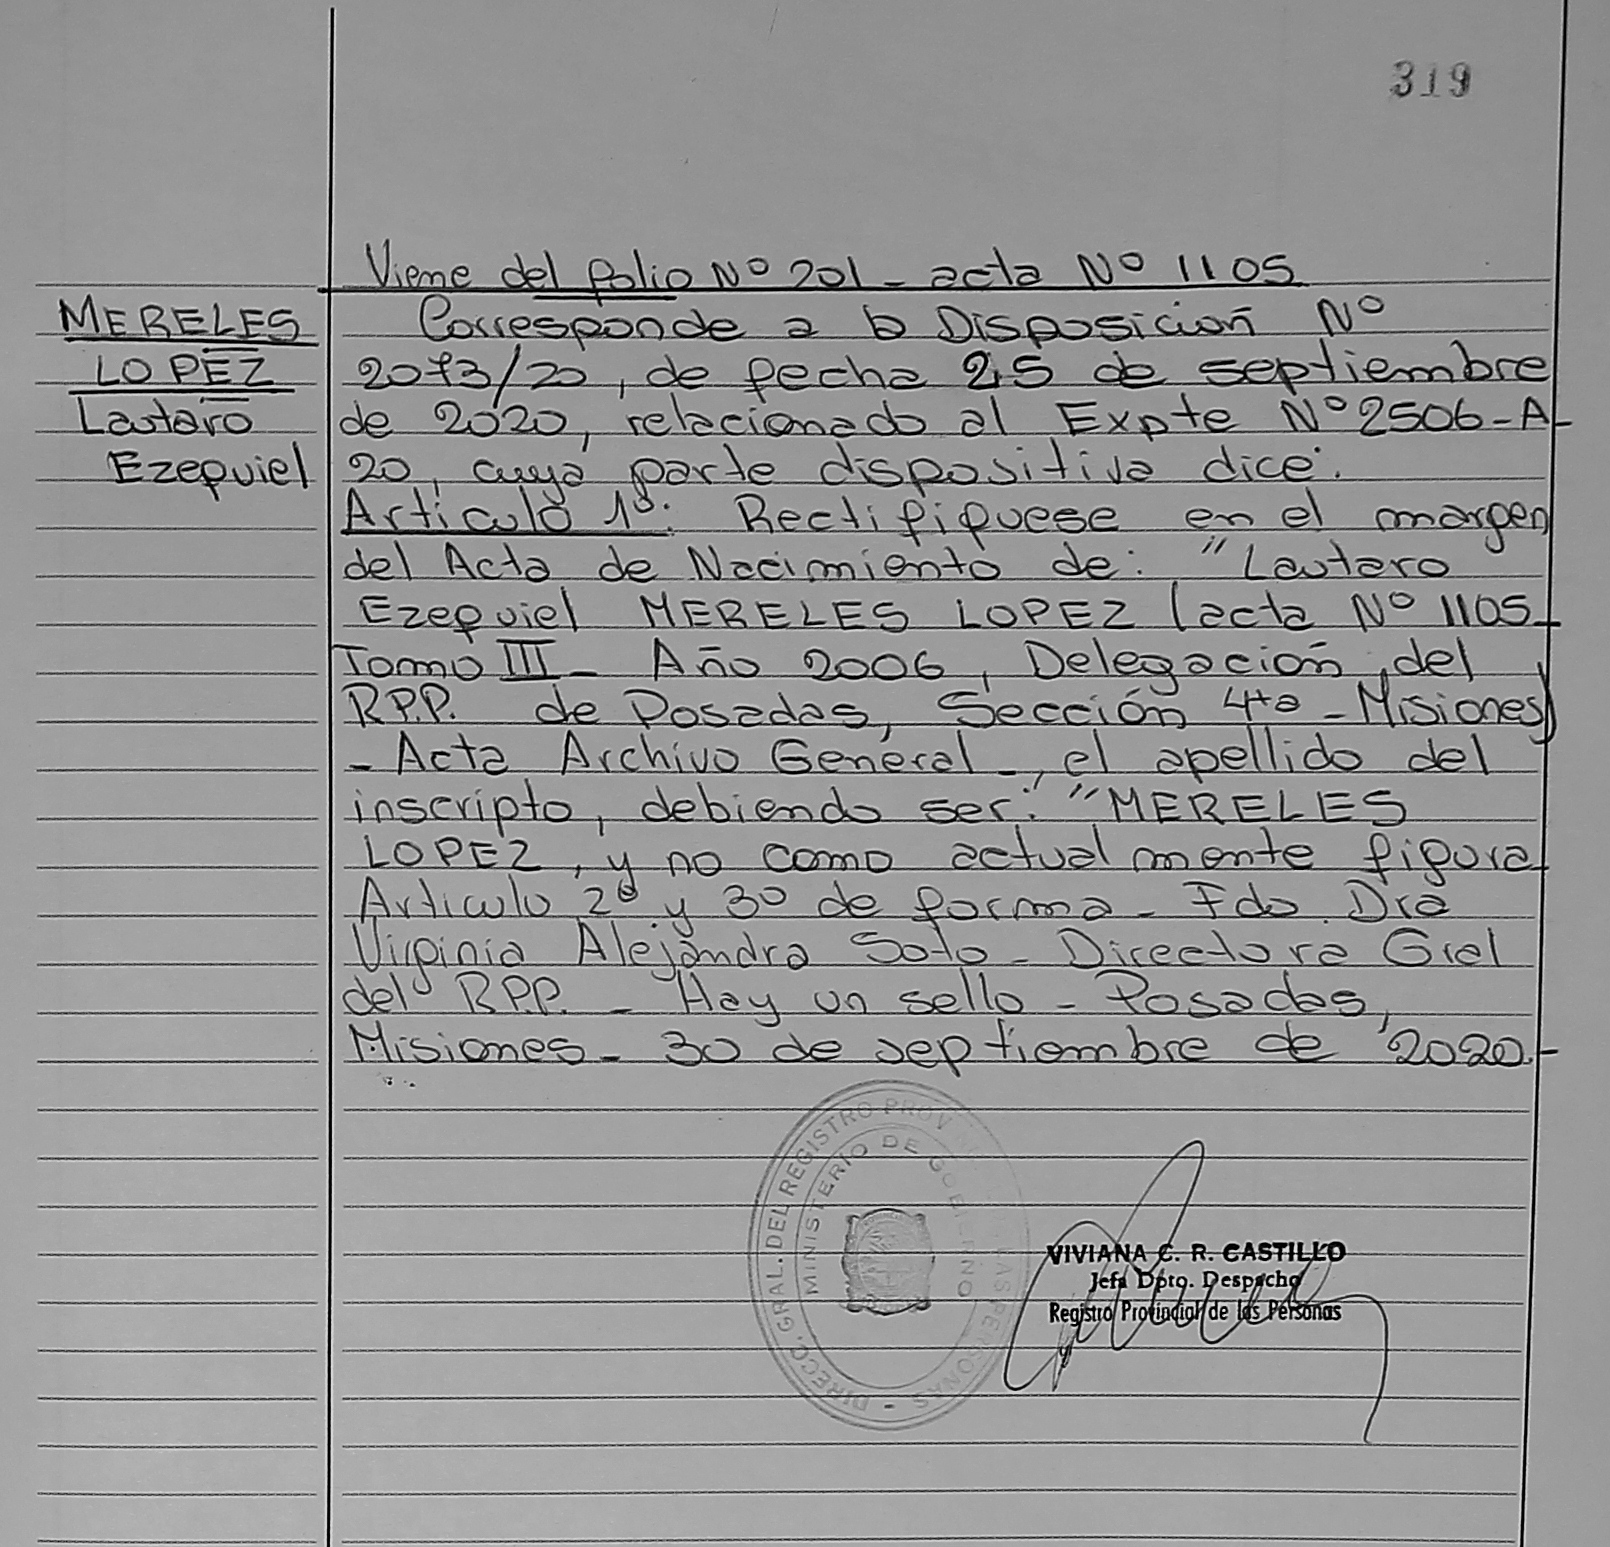 319
Viene del folio Nº 201 - acta Nº 1105
MERELES
LOPEZ
Lautaro
Ezequiel
Corresponde a la Disposición Nº
2073/20, de fecha 25 de septiembre
de 2020, relacionado al Expte Nº 2506-A-
20, cuya parte dispositiva dice:
Articulo 1º: Rectifiquese en el margen
del Acta de Nacimiento de: "Lautaro
Ezequiel MERELES LOPEZ (acta Nº 1105
Tomo III - Año 2006, Delegación del
R.P.P. de Posadas, Sección 4ta - Misiones)
- Acta Archivo General -, el apellido del
inscripto, debiendo ser: "MERELES
LOPEZ, y no como actualmente figura
Articulo 2º y 3º de forma - Fdo. Dra
Virginia Alejandra Soto - Directora Gral
del R.P.P. - Hay un sello - Posadas,
Misiones - 30 de septiembre de 2020.-
DIRECC. GRAL. DEL REGISTRO PROV LAS PERSONAS -
MINISTERIO DE GOBIERNO
VIVIANA C. R. CASTILLO
Jefa Dpto. Despacho
Registro Provincial de las Personas